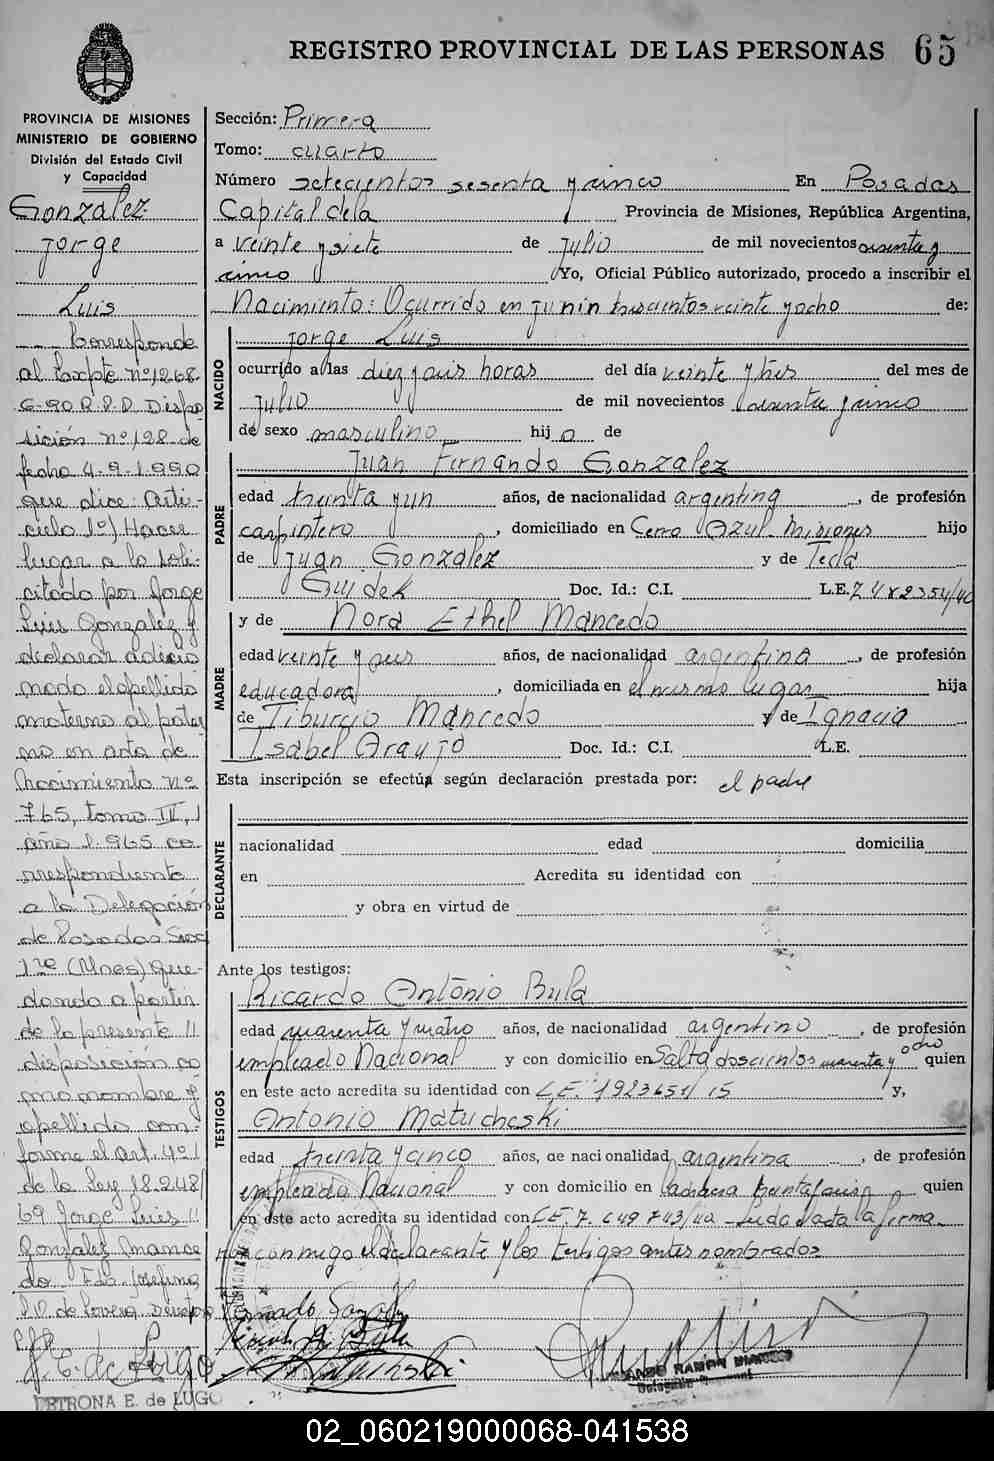 REGISTRO PROVINCIAL DE LAS PERSONAS 65
PROVINCIA DE MISIONES
MINISTERIO DE GOBIERNO
División del Estado Civil
y Capacidad
Gonzalez
Jorge
Luis
Corresponde
al Expte nº 1268
G-90 R.P.P. Dispo
sición nº 128 de
fecha 4-9-1990
que dice: Artí-
culo 1º) Hacer
lugar a lo soli-
citado por Jorge
Luis Gonzalez y
declarar adicio
nado el apellido
materno al pater
no en acta de
Nacimiento nº
765, tomo IV,
año 1.965 co
rrespondiente
a la Delegación
de Posadas Secc
1ra (Mnes) que-
dando a partir
de la presente //
disposición co
mo nombre y
apellido con-
forme el art. 4º
de la Ley 18.248/
69 Jorge Luis //
Gonzalez Mance
do. Fdo. Josefina
PETRONA E. de LUGO
Sección: Primera
Tomo: cuarto
Número setecientos sesenta y cinco En Posadas
Capital de la Provincia de Misiones, República Argentina,
a veinte y siete de Julio de mil novecientos sesenta y
cinco Yo, Oficial Público autorizado, procedo a inscribir el
Nacimiento: Ocurrido en Junin trescientos veinte y ocho de:
NACIDO
Jorge Luis
ocurrido a las diez y seis horas del día veinte y tres del mes de
Julio de mil novecientos sesenta y cinco
de sexo masculino hijo de
PADRE
Juan Fernando Gonzalez
edad treinta y un años, de nacionalidad argentina, de profesión
carpintero, domiciliado en Cerro Azul Misiones hijo
de Juan Gonzalez y de Tecla
Guidek Doc. Id.: C.I. L.E. 7482354/40
MADRE
y de Nora Ethel Mancedo
edad veinte y seis años, de nacionalidad argentina, de profesión
educadora, domiciliada en el mismo lugar hija
de Tiburcio Mancedo y de Ignacia
Isabel Araujo Doc. Id.: C.I. L.E.
Esta inscripción se efectúa según declaración prestada por: el padre
DECLARANTE
nacionalidad edad domicilia
en Acredita su identidad con
y obra en virtud de
Ante los testigos:
TESTIGOS
Ricardo Antonio Bula
edad cuarenta y cuatro años, de nacionalidad argentino, de profesión
empleado Nacional y con domicilio en Salta doscientos cuarenta y ocho quien
en este acto acredita su identidad con L.E. 1923651/15 y,
Antonio Matucheski
edad treinta y cinco años, de nacionalidad argentina, de profesión
empleado Nacional y con domicilio en treinta y seis quien
en este acto acredita su identidad con L.E. 7.649743/40 - Leida el acta la firma
conmigo el declarante y los testigos antes nombrados
02_060219000068-041538